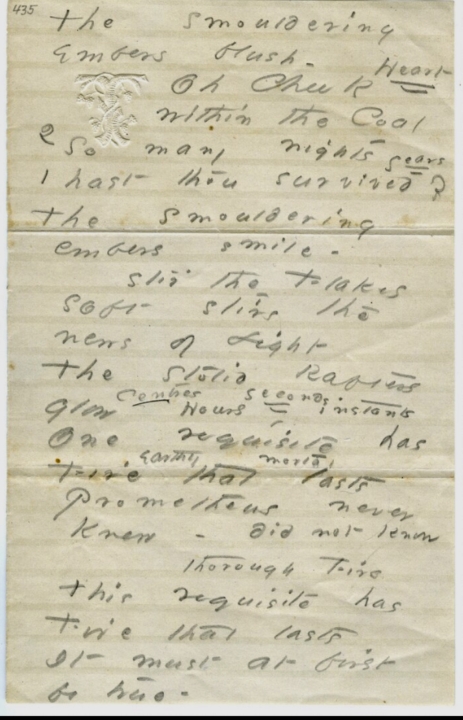 435
The smouldering
Embers blush -
Oh Cheek Heart
within the Coal
2 So many nights years
1 hast thou survived ?
The smouldering
embers smile -
Stir the Flakes
Soft stirs the
news of Light
The stolid Rafters
Centres seconds
glow Hours instants
One requisite has
Earthly mortal
Fire that lasts
Prometheus never
Knew - did not know
thorough Fire
This requisite has
Fire that lasts
It must at first
be true -